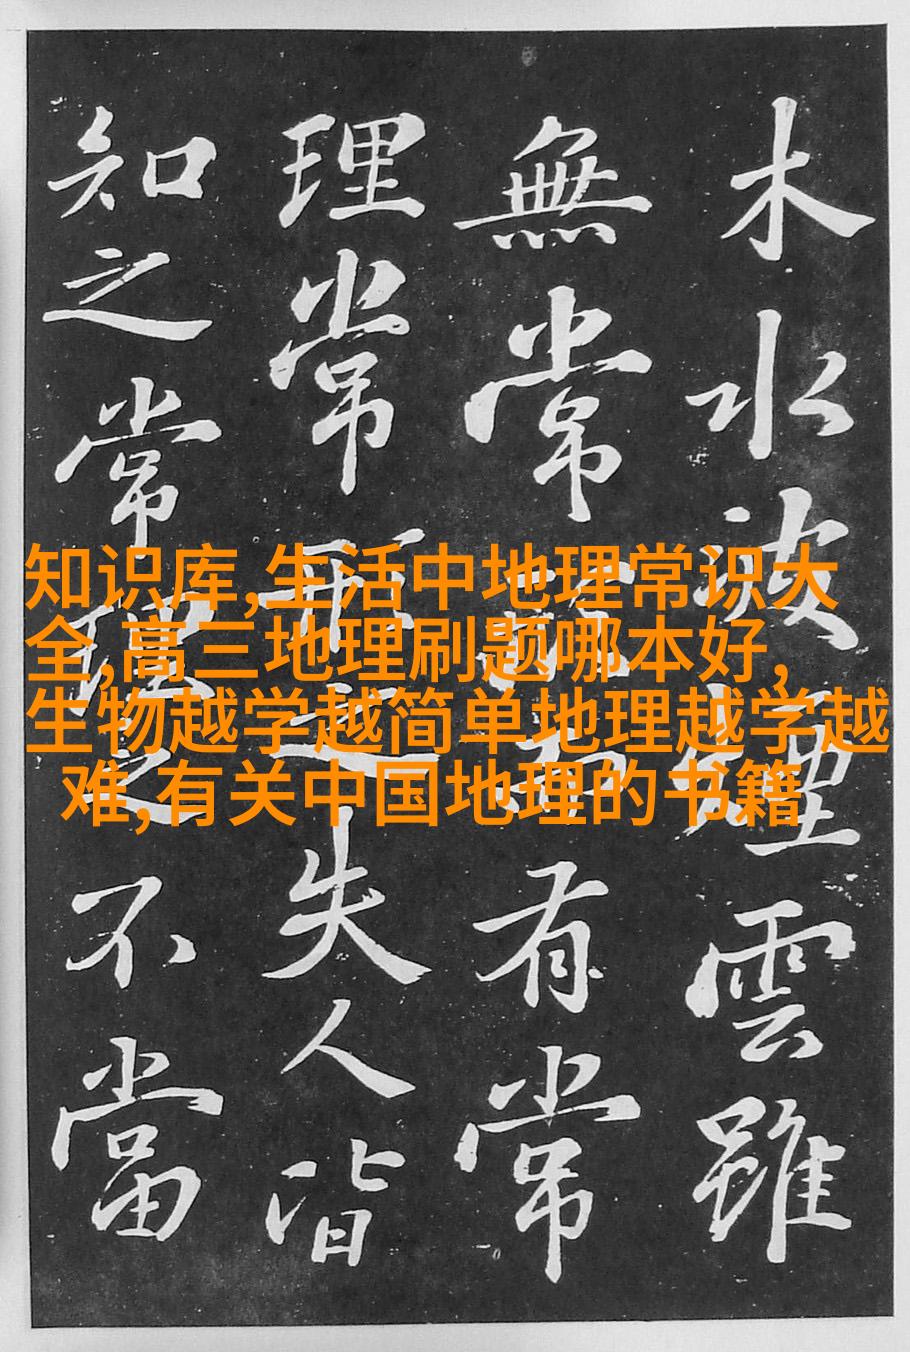 木水波煙雲雖
無常有常
理常形之失人皆
知之常理之不當
知识库,生活中地理常识大
全,高三地理刷题哪本好,
生物越学越简单地理越学越
难,有关中国地理的书籍